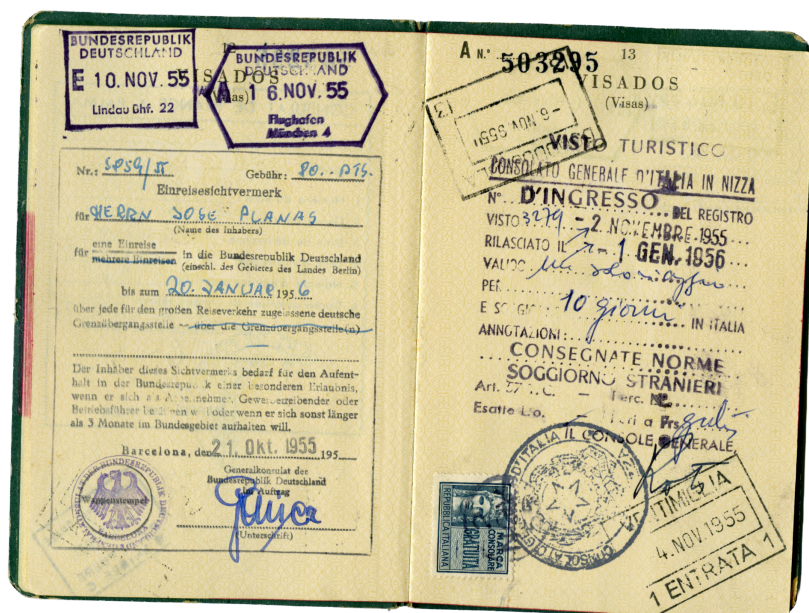 BUNDESREPUBLIK
DEUTSCHLAND
E 10. NOV. 55
Lindau Bhf. 22
12
VISADOS
(Visas)
BUNDESREPUBLIK
DEUTSCHLAND
A 16. NOV. 55
Flughafen
München 4
Nr.: Gebühr: 80.- PTS.
Einreisesichtvermerk
für HERRN JOSE PLANAS
(Name des Inhabers)
für eine Einreise
mehrere Einreisen in die Bundesrepublik Deutschland
(einschl. des Gebietes des Landes Berlin)
bis zum 20. JANUAR 1956
über jede für den großen Reiseverkehr zugelassene deutsche
Grenzübergangsstelle — über die Grenzübergangsstelle(n)
Der Inhaber dieses Sichtvermerks bedarf für den Aufent-
halt in der Bundesrepublik einer besonderen Erlaubnis,
wenn er sich als Arbeitnehmer, Gewerbetreibender oder
Betriebsführer betätigen will oder wenn er sich sonst länger
als 3 Monate im Bundesgebiet aufhalten will.
Barcelona, den 21. Okt. 1955 195
Generalkonsulat der
Bundesrepublik Deutschland
Im Auftrag
(Unterschrift)
Wappenstempel
A N.º 503295 13
VISADOS
(Visas)
6 NOV 1955
VISTO TURISTICO
CONSOLATO GENERALE D'ITALIA IN NIZZA
D'INGRESSO
N° DEL REGISTRO
VISTO 3279 - 2 NOVEMBRE 1955
RILASCIATO IL - 1 GEN. 1956
VALIDO
PER
E SOGGIORNO 10 giorni IN ITALIA
ANNOTAZIONI:
CONSEGNATE NORME
SOGGIORNO STRANIERI
Art. Perc.
Esatte
IL CONSOLE GENERALE
REPUBBLICA ITALIANA
MARCA
CONSOLARE
GRATUITA
VENTIMIGLIA
4. NOV. 1955
1 ENTRATA 1